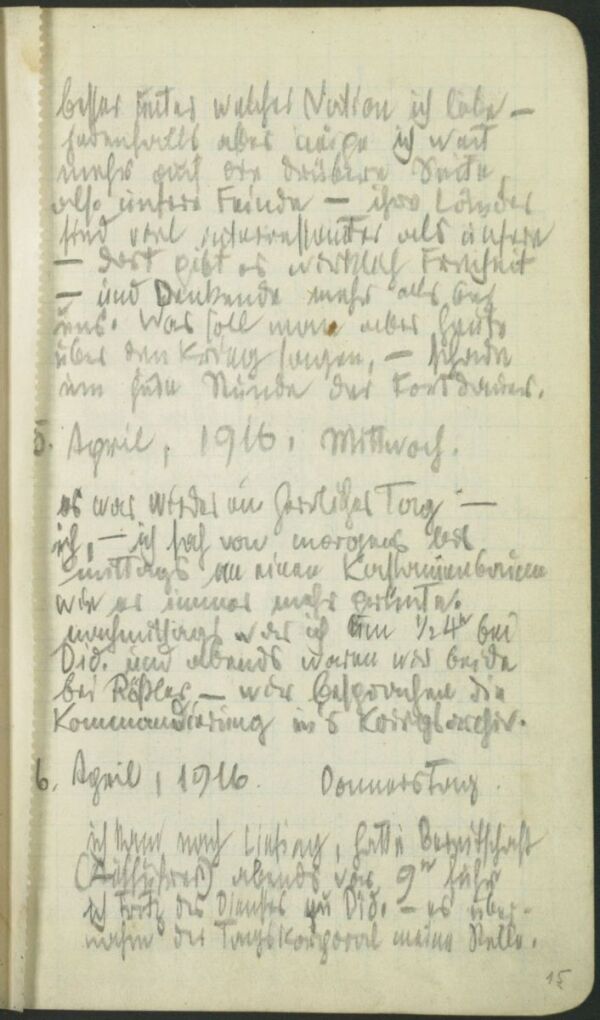 besser unter welcher Nation ich lebe –
jedenfalls aber neige ich weit
mehr auf die drübere Seite,
also unsere Feinde – ihre Länder
sind viel interressanter als unsere
– dort gibt es wirklich Freiheit
– und Denkende mehr als bei
uns. Was soll man aber heute
über den Krieg sagen, – schade
um jede Stunde der Fortdauer.
5. April, 1916, Mittwoch.
es war wieder ein herrlicher Tag –
ich, – ich sah von morgens bis
mittags an einen Kastanienbaum
wie er immer mehr
nachmittags war ich um 1/2 4h bei
Did. und abends waren wir beide
bei Rößler, – wir besprachen die
Kommandierung in's Kriegsarchiv.
6. April, 1916. Donnerstag.
ich kam nach Liesing, hatte Bereitschaft
abends vor 9h fuhr
ich trotz des Dienstes zu Did. – es über-
nahm der Tagskorporal meine Stelle.
15